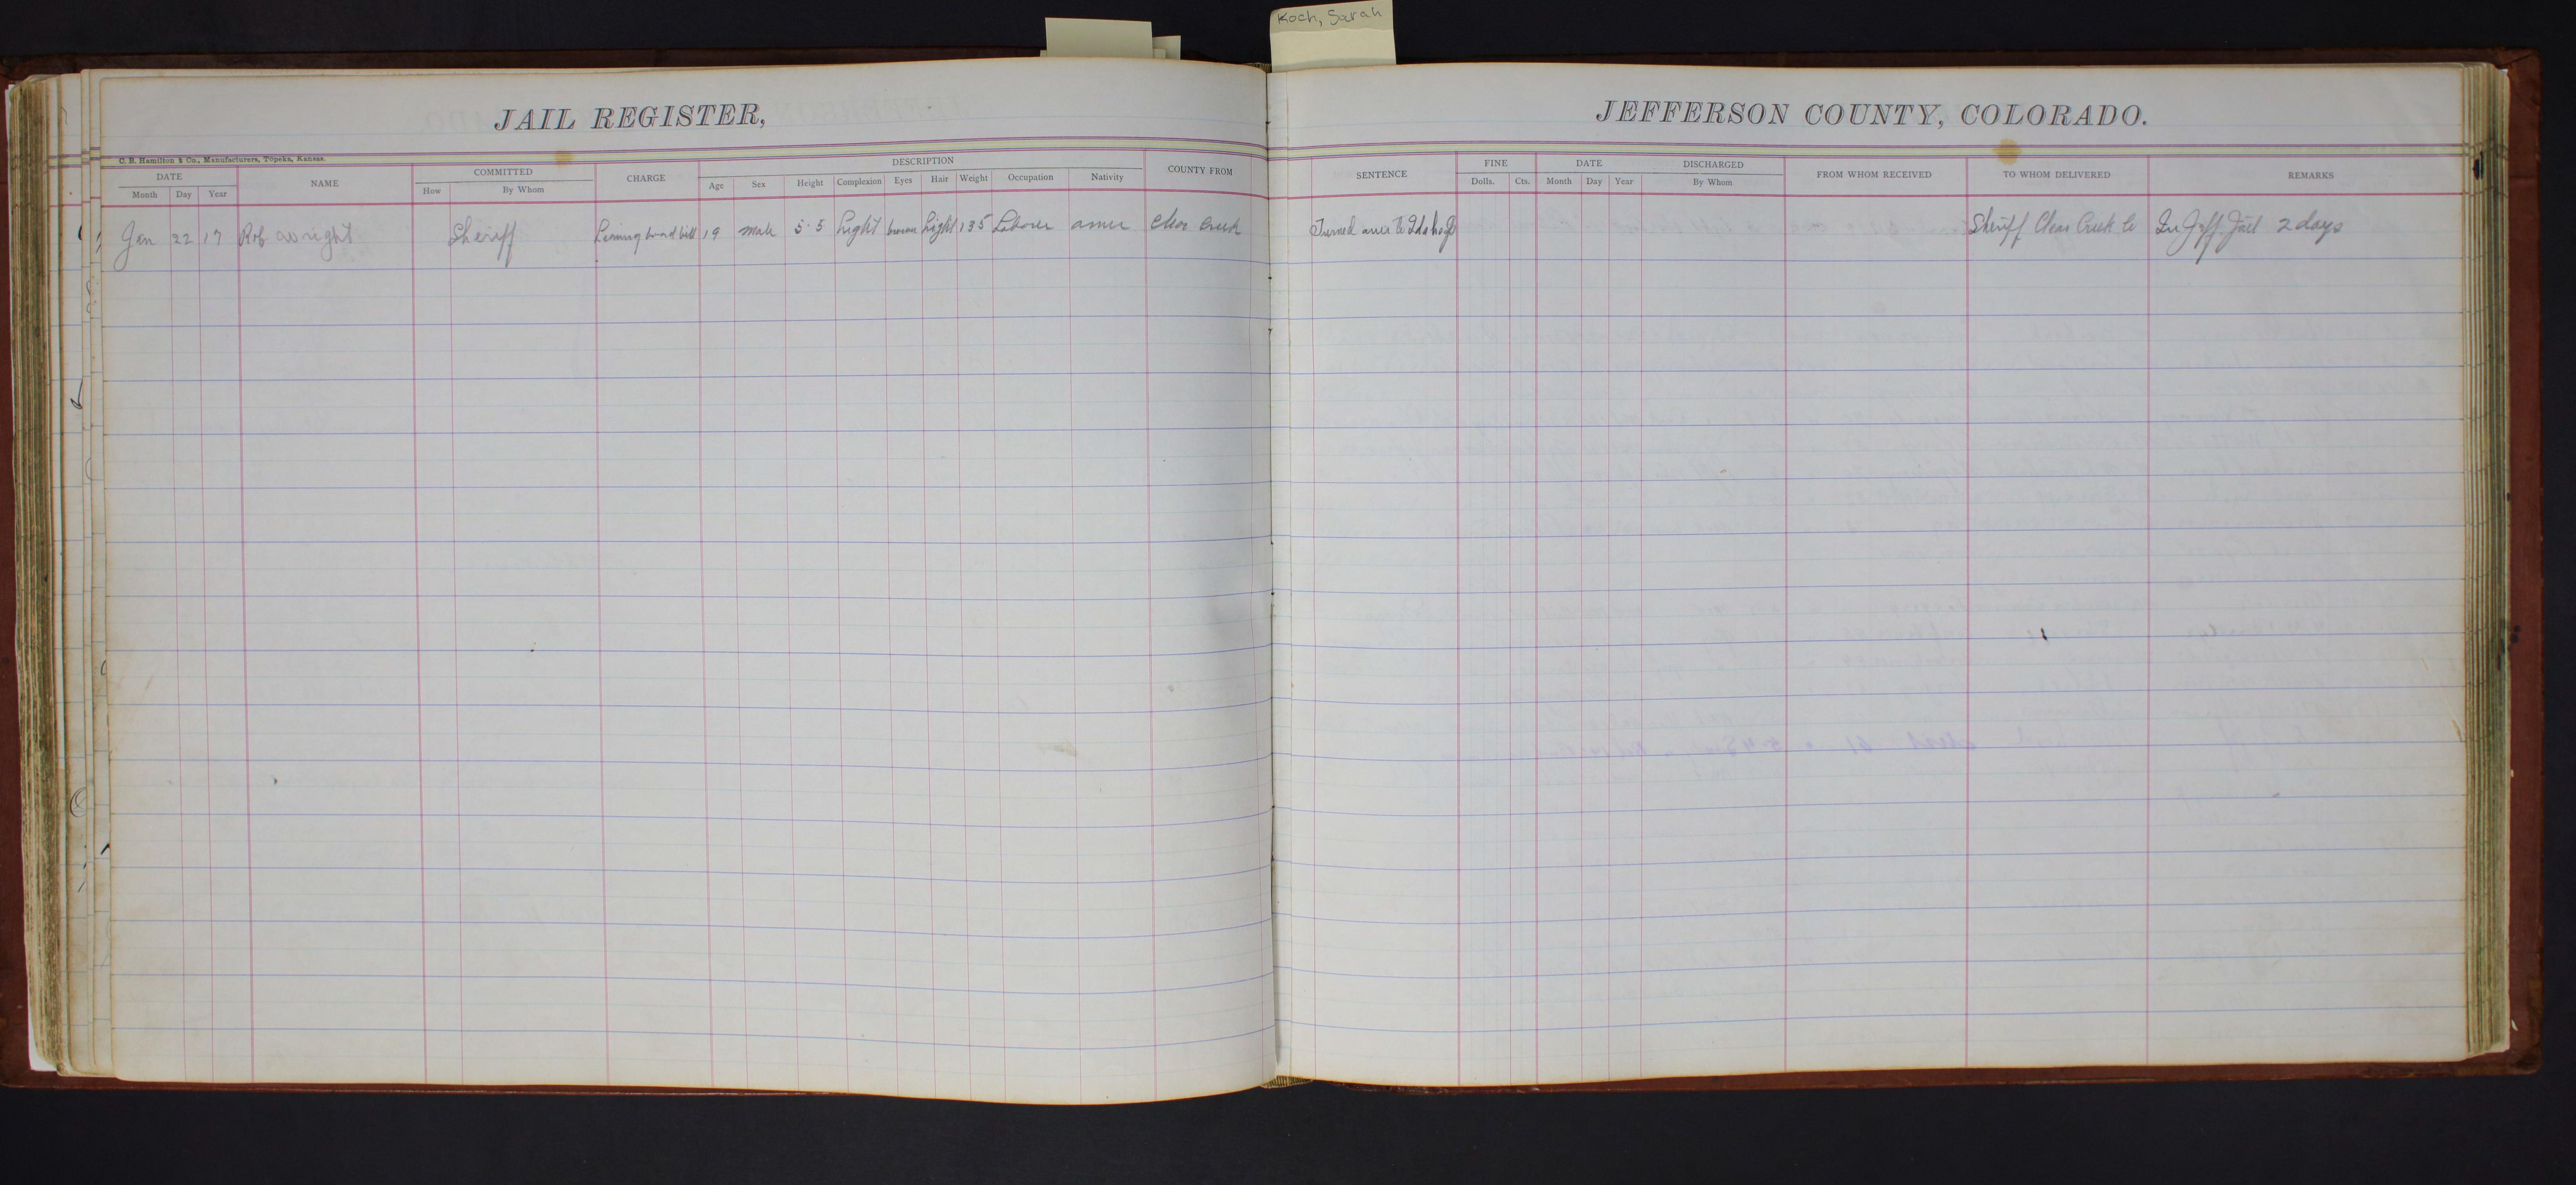 Koch, Sarah
JAIL REGISTER,
JEFFERSON COUNTY, COLORADO.
C. B. Hamilton & Co., Manufacturers, Topeka, Kansas.
DATE NAME COMMITTED CHARGE DESCRIPTION COUNTY FROM SENTENCE FINE DATE DISCHARGED FROM WHOM RECEIVED TO WHOM DELIVERED REMARKS
Month Day Year How By Whom Age Sex Height Complexion Eyes Hair Weight Occupation Nativity Dolls. Cts. Month Day Year By Whom
Jan 22 17 Rob wright Sheriff bill 19 male 5-5 Light brown Light 135 Laborer amer Clear Creek Turned over to Sheriff Clear Creek Co In Jeff. Jail 2 days